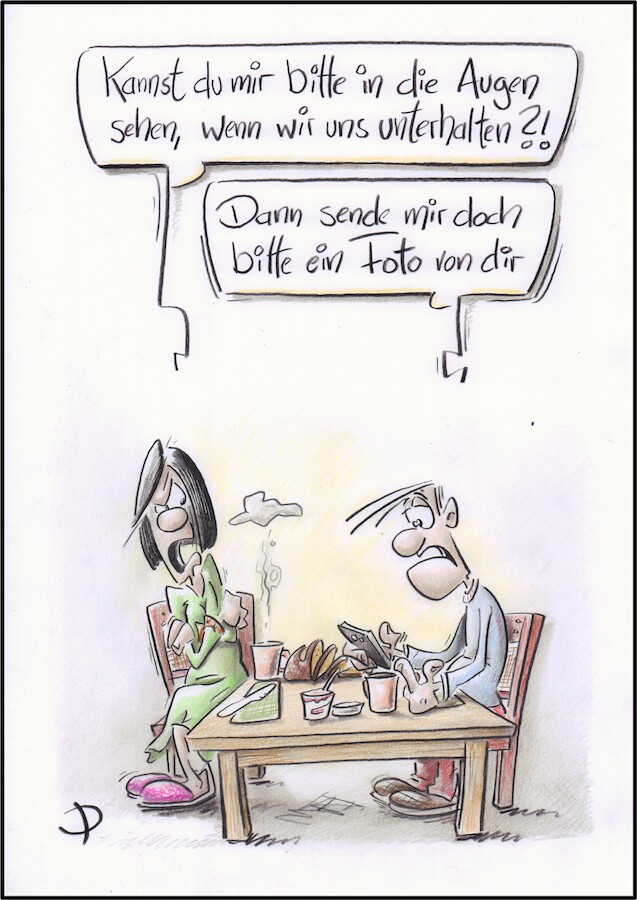 Kannst du mir bitte in die Augen
sehen, wenn wir uns unterhalten?!
Dann sende mir doch
bitte ein Foto von dir